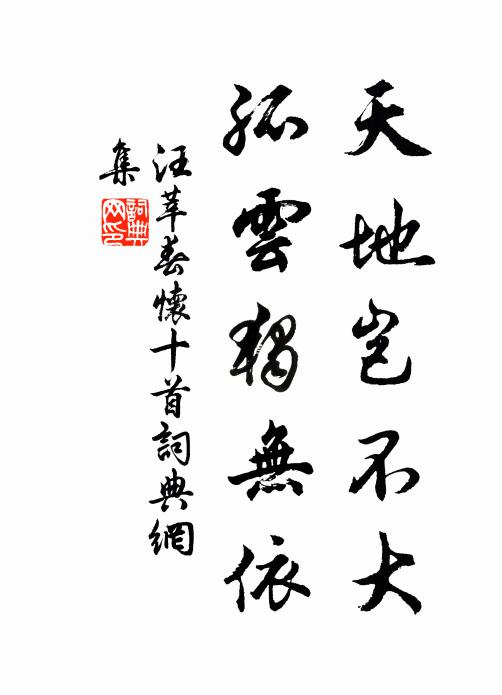 天地豈不大
孤雲獨無依
汪莘春懷十首詞典網
集
詞典網印